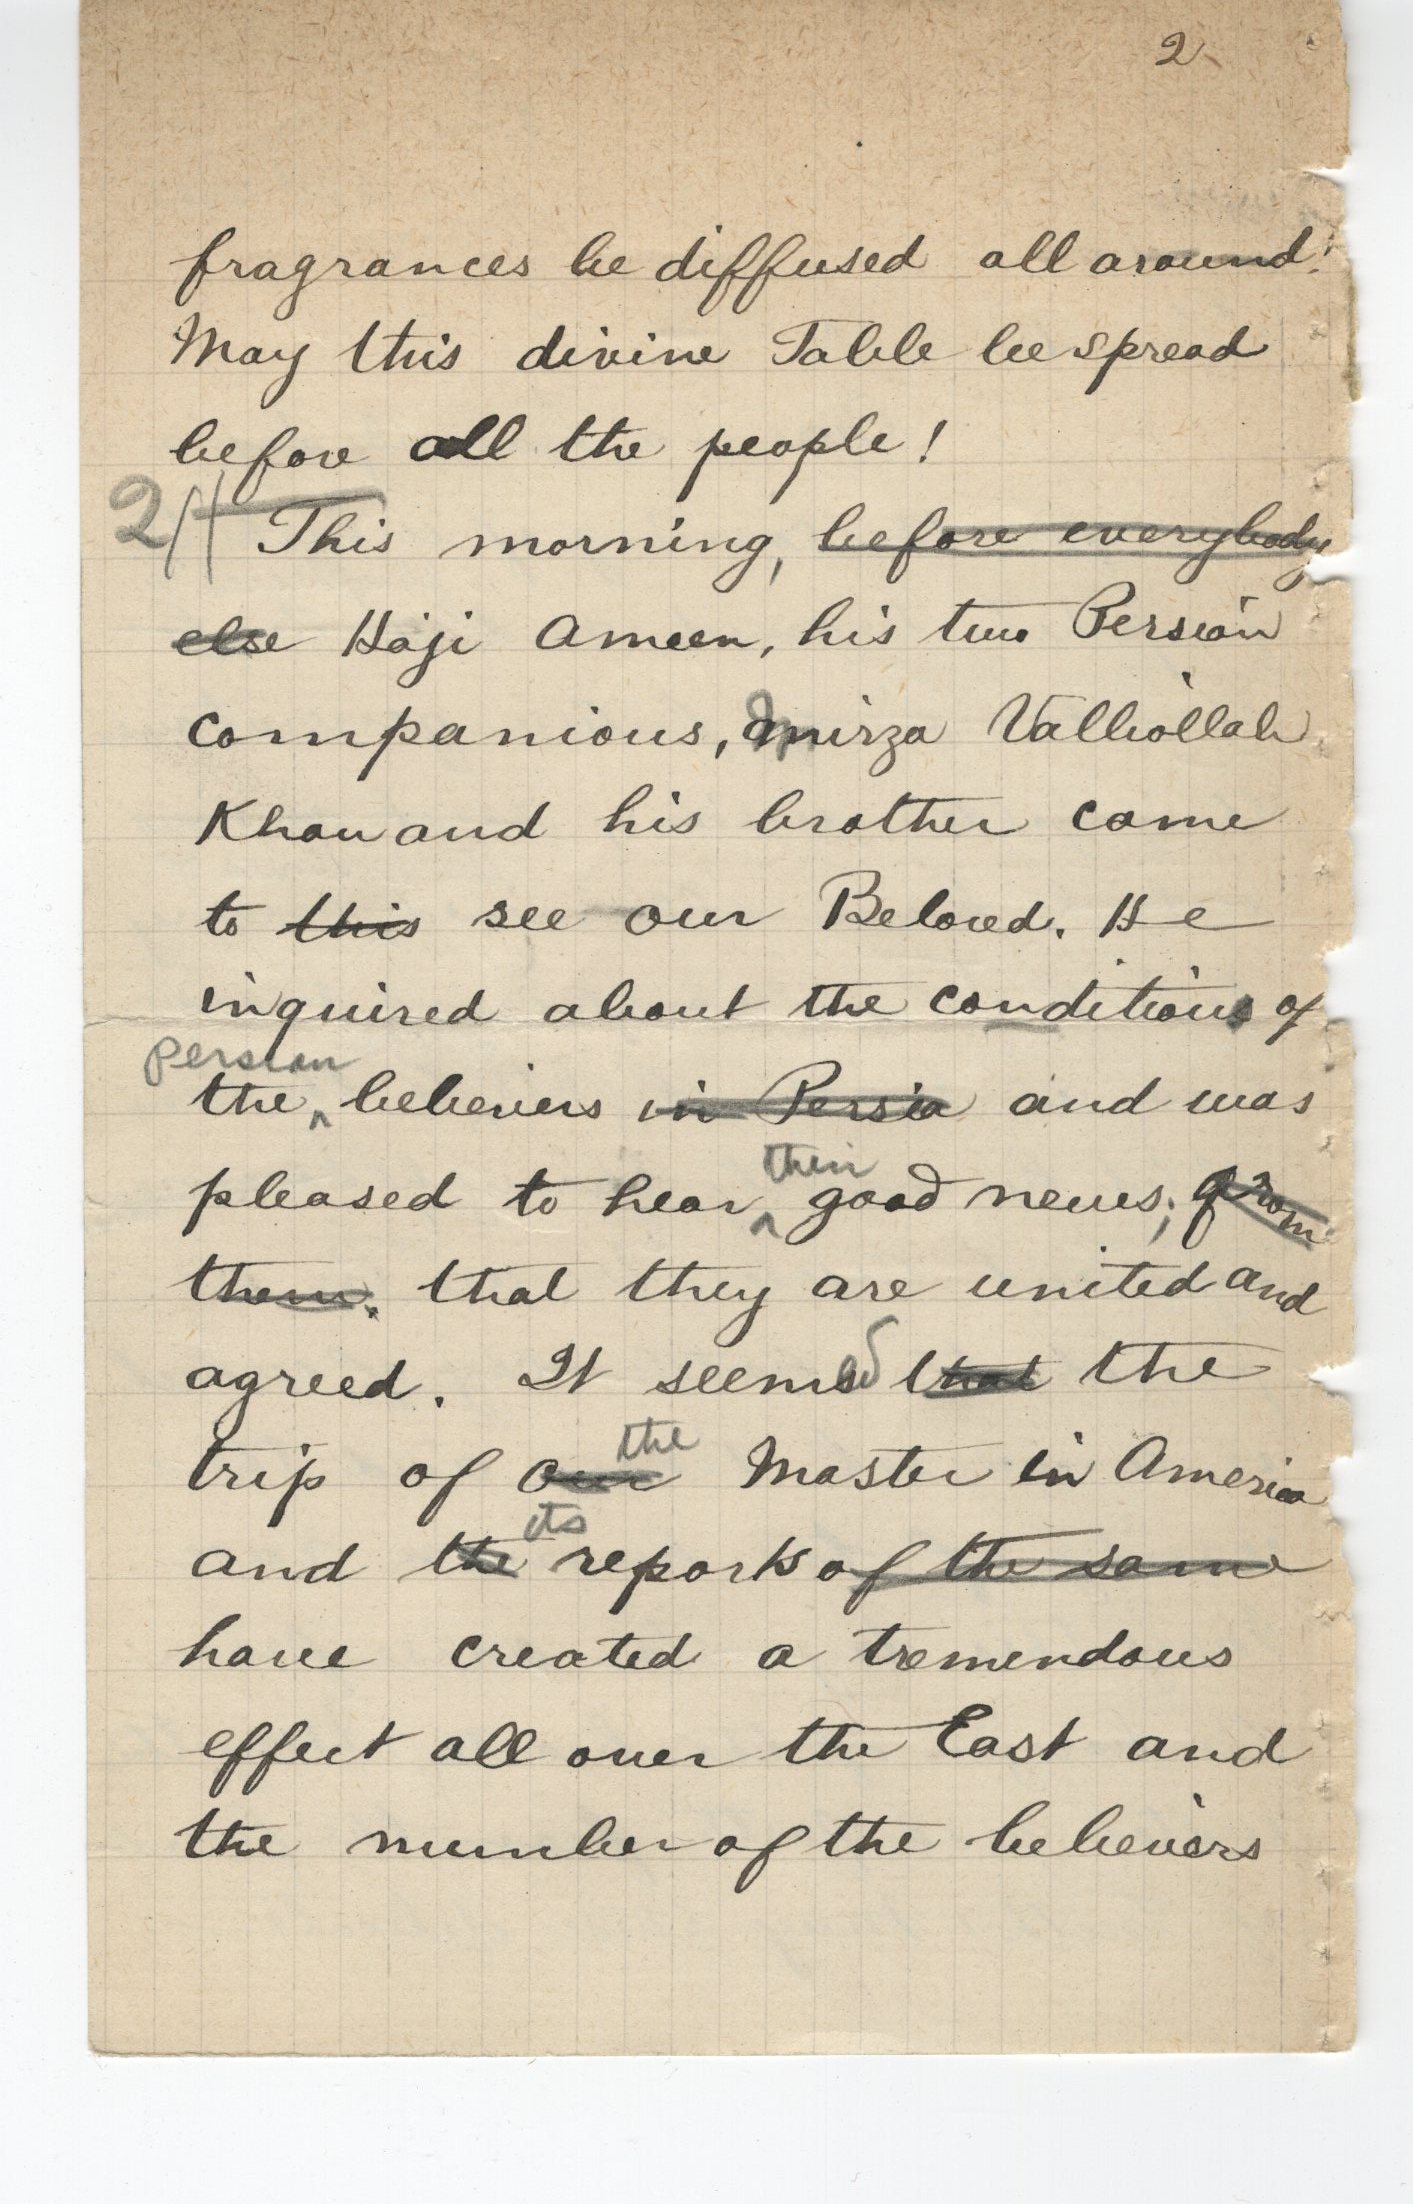 2
fragrances be diffused all around!
May this divine Table be spread
before all the people!
2
This morning, before everybody
else Haji Ameen, his two Persian
companions, Mirza Valliollah
Khan and his brother came
to this see our Beloved. He
inquired about the conditions of
Persian
the ^ believers in Persia and was
their
pleased to hear ^ good news; from
them. that they are united and
agreed. It seemed that the
the
trip of our Master in America
its
and the reports of the same
have created a tremendous
effect all over the East and
the number of the believers